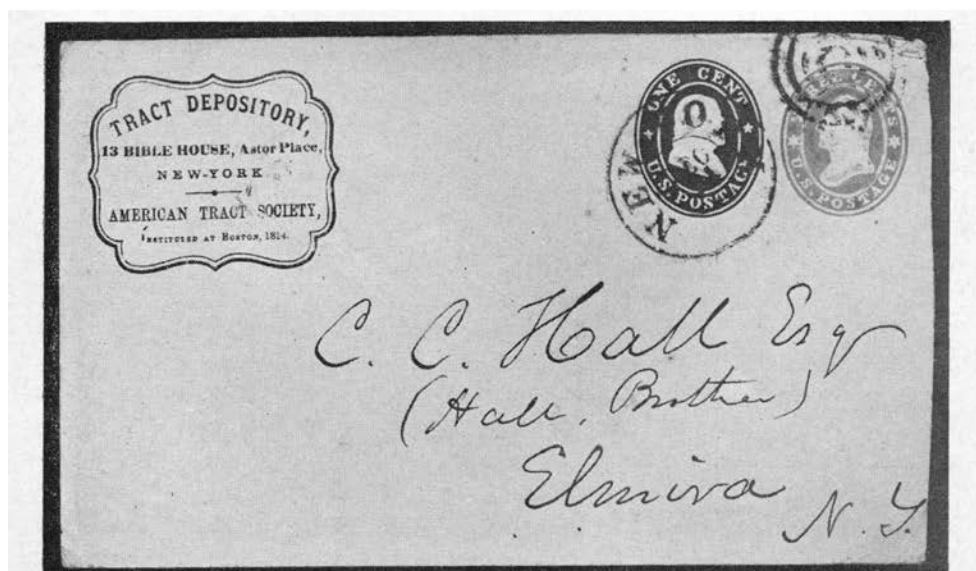 TRACT DEPOSITORY,
13 BIBLE HOUSE, Astor Place,
NEW-YORK
AMERICAN TRACT SOCIETY,
INSTITUTED AT BOSTON, 1814.
ONE CENT
U.S. POSTAGE
THREE CENTS
U.S. POSTAGE
NEW
C. C. Hall Esq
(Hall, Brother)
Elmira
N. Y.